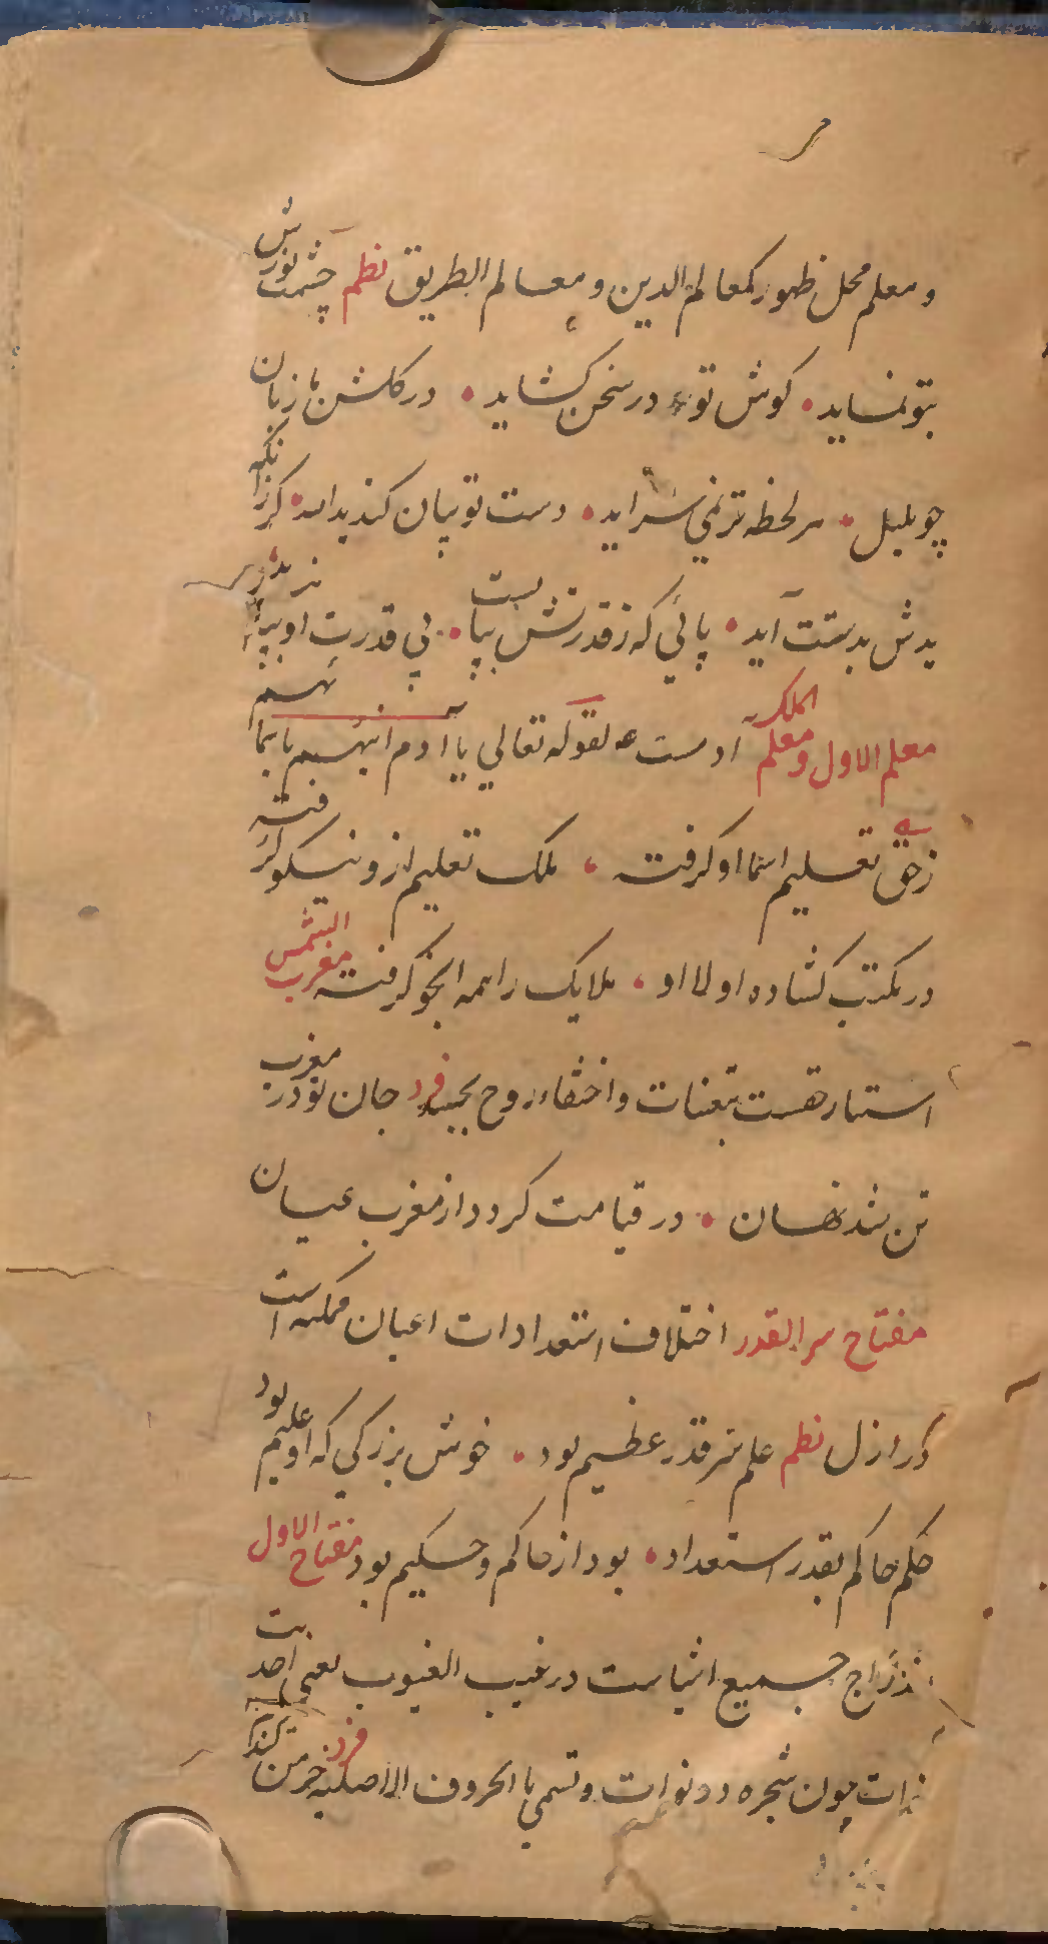 و معلم محل ظهور کمعالم الدین و معالم الطریق نظم چشمت نورش
بتو نماید کوش تو در سخن کشاید در کلشن با زبان
چو بلبل هر لحظه ترنمی سراید دست تو بیان کند یداله کر زانکه
یدش بدستت آید پائی که ز قدرتش بپا بست بی قدرت او بپا
معلم الاول و معلم الملک آدمست عه لقوله تعالی یا آدم انبئهم باسمائهم
ز حق تعلیم اسما او کرفته ملک تعلیم ازو نیکو کرفته
در مکتب کشاده اولا او ملایک را همه ابجو کرفته مغرب الشمس
استتار حقست بتعینات و اختفاء روح بجسد فرد جان تو در مغرب
تن شد نهان در قیامت کردد از مغرب عیان
مفتاح سر القدر اختلاف استعدادات اعیان ممکنه است
در ازل نظم علم سر قدر عظیم بود خوش بزرکی که او علیم بود
حکم حاکم بقدر استعداد بود از حاکم و حکیم بود مفتاح الاول
اندراج جمیع اشیاست در غیب الغیوب یعنی احدیت
ذات چون شجره در نوات و تسمی بالحروف الاصلیه فرد خرمن